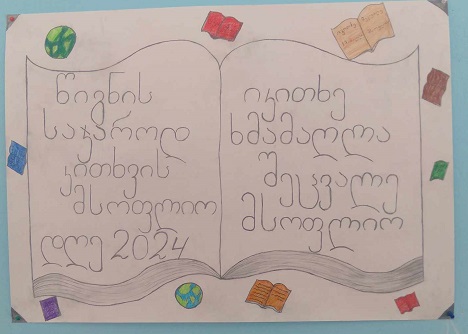 წიგნის
საჯაროდ
კითხვის
მსოფლიო
დღე 2024
იკითხე
ხმამაღლა
შეცვალე
მსოფლიო